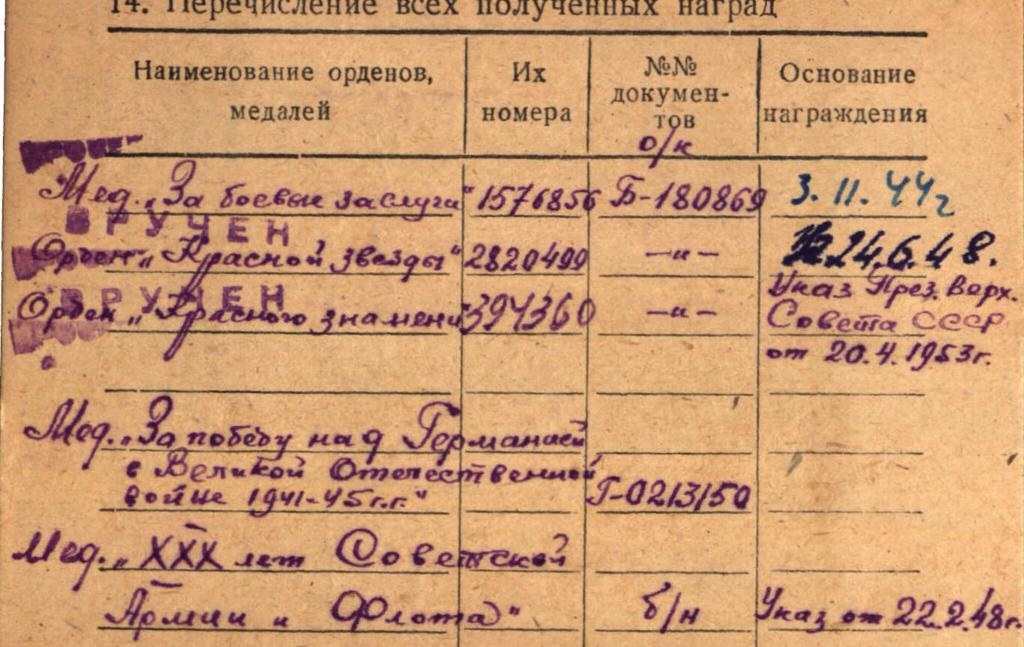 14. Перечисление всех полученных наград
Наименование орденов, медалей
Их номера
№№ докумен-тов
Основание награждения
о/к
Мед. „За боевые заслуги“ 1576856 Б-180869 3.11.44г
ВРУЧЕН
Орден „Красной звезды“ 2820499 —„— 24.6.48.
ВРУЧЕН
Орден „Красного знамени“ 394360 —„— Указ През. Верх.
Совета СССР
от 20.4.1953г.
Мед. „За победу над Германией
в Великой Отечественной
войне 1941-45г.г.“ Г-0213150
Мед. „XXX лет Советской
Армии и Флота“ б/н Указ от 22.2.48г.